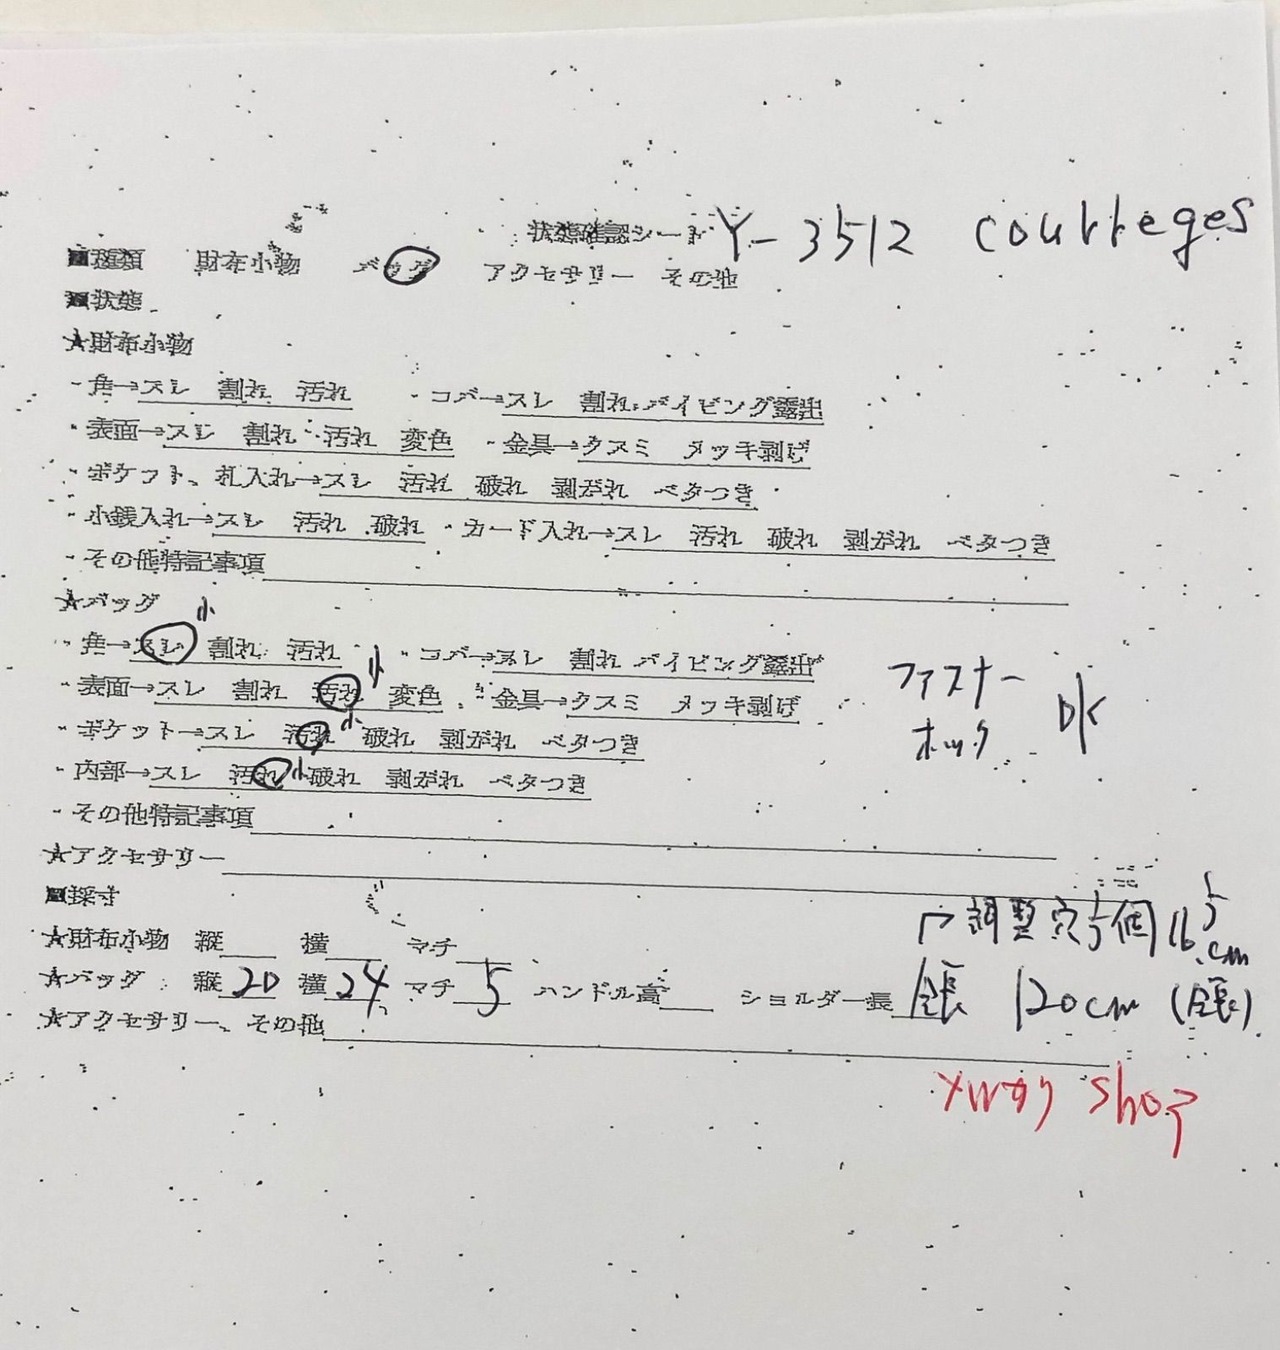 状態確認シート Y-3512 courreges
■種類 財布小物 バッグ アクセサリー その他
■状態
★財布小物
・角→スレ 割れ 汚れ ・コバ→スレ 割れ パイピング露出
・表面→スレ 割れ 汚れ 変色 ・金具→クスミ メッキ剥げ
・ポケット、札入れ→スレ 汚れ 破れ 剥がれ ベタつき
・小銭入れ→スレ 汚れ 破れ ・カード入れ→スレ 汚れ 破れ 剥がれ ベタつき
・その他特記事項
★バッグ
・角→スレ 小 割れ 汚れ ・コバ→スレ 割れ パイピング露出
・表面→スレ 割れ 汚れ 小 変色 ・金具→クスミ メッキ剥げ
・ポケット→スレ 汚れ 小 破れ 剥がれ ベタつき
・内部→スレ 汚れ 小 破れ 剥がれ ベタつき
ファスナー
ホック OK
・その他特記事項
★アクセサリー
■採寸
調整穴5個
★財布小物 縦 横 マチ
★バッグ 縦 20 横 24 マチ 5 ハンドル高 ショルダー長 全長 120cm (全長)
★アクセサリー、その他
shop